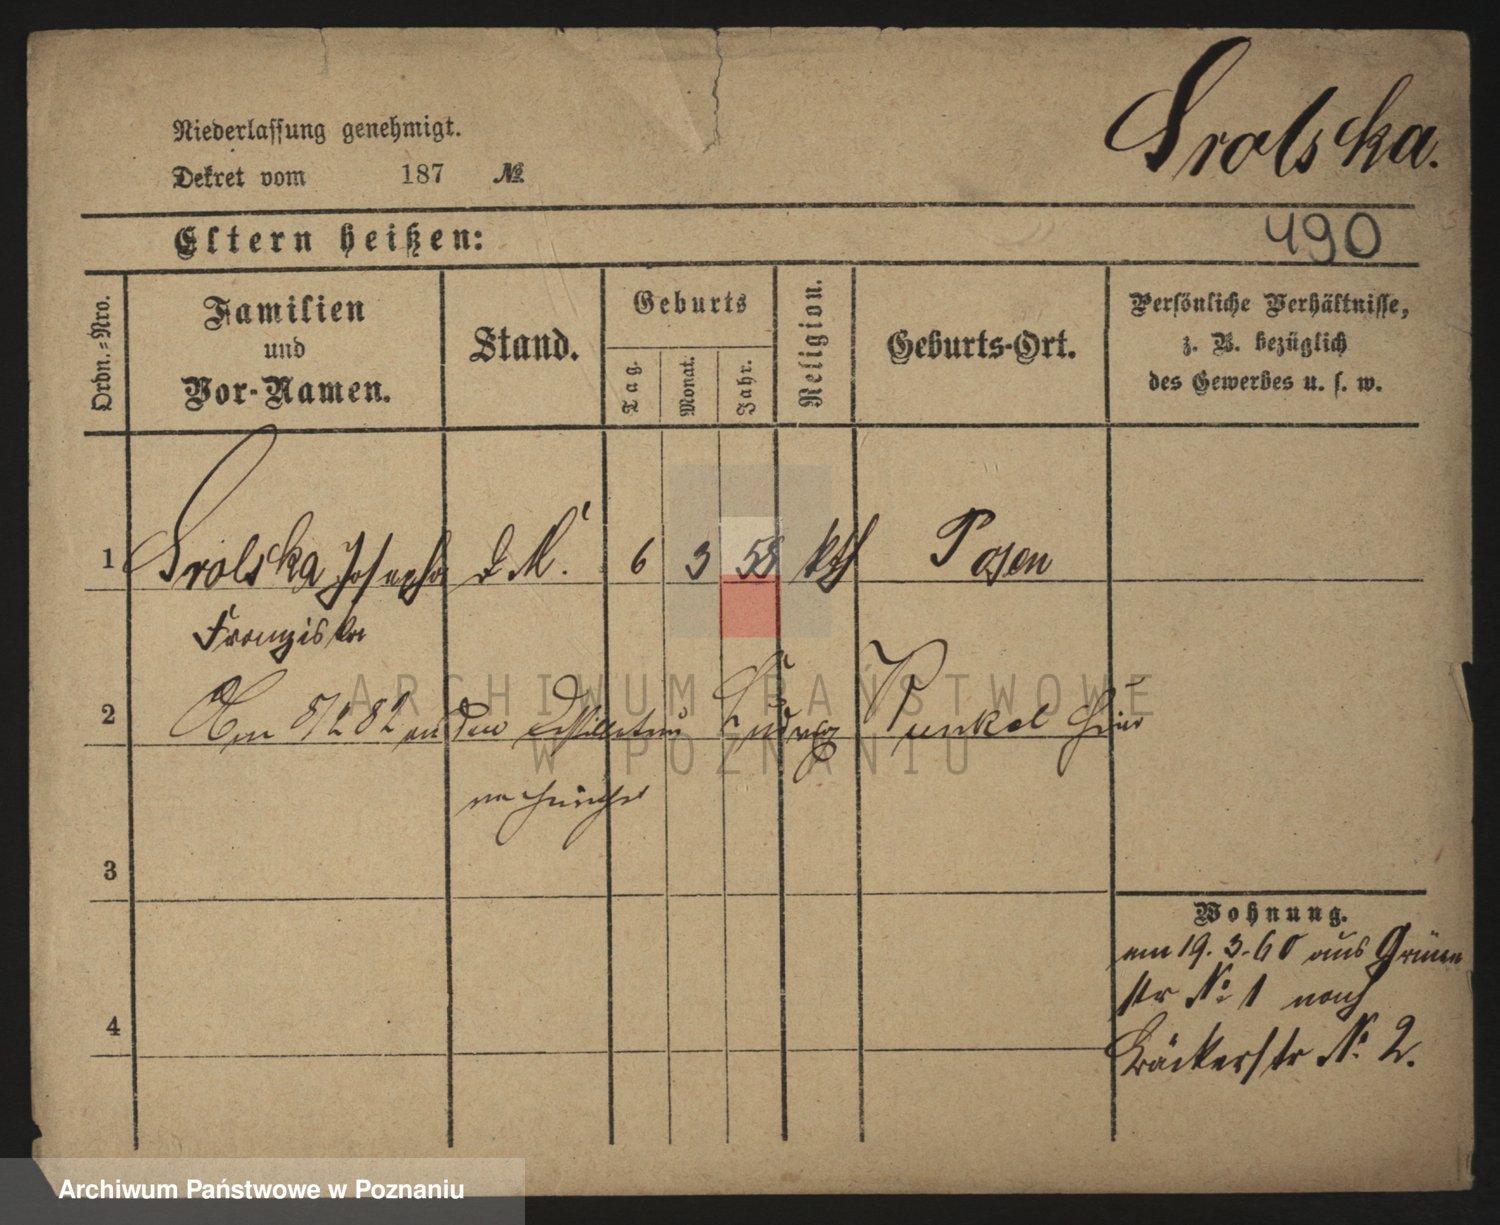 Srolska.
Niederlassung genehmigt.
Dekret vom 187 №
Eltern heißen:
490
Ordn.-Nro.
Familien
und
Vor-Namen.
Stand.
Geburts
Tag.
Monat.
Jahr.
Religion.
Geburts-Ort.
Persönliche Verhältnisse,
z. B. bezüglich
des Gewerbes u. s. w.
1 Srolska Josepha d. M. 6 3 58 kth Posen
Franziska
2 Am 8/2 82 an den Ludwig Kunkel hier
3
Wohnung.
am 19. 3. 60 aus Grünen
str No 1 nach
Bäckerstr No 2.
4
ARCHIWUM PAŃSTWOWE
W POZNANIU
Archiwum Państwowe w Poznaniu